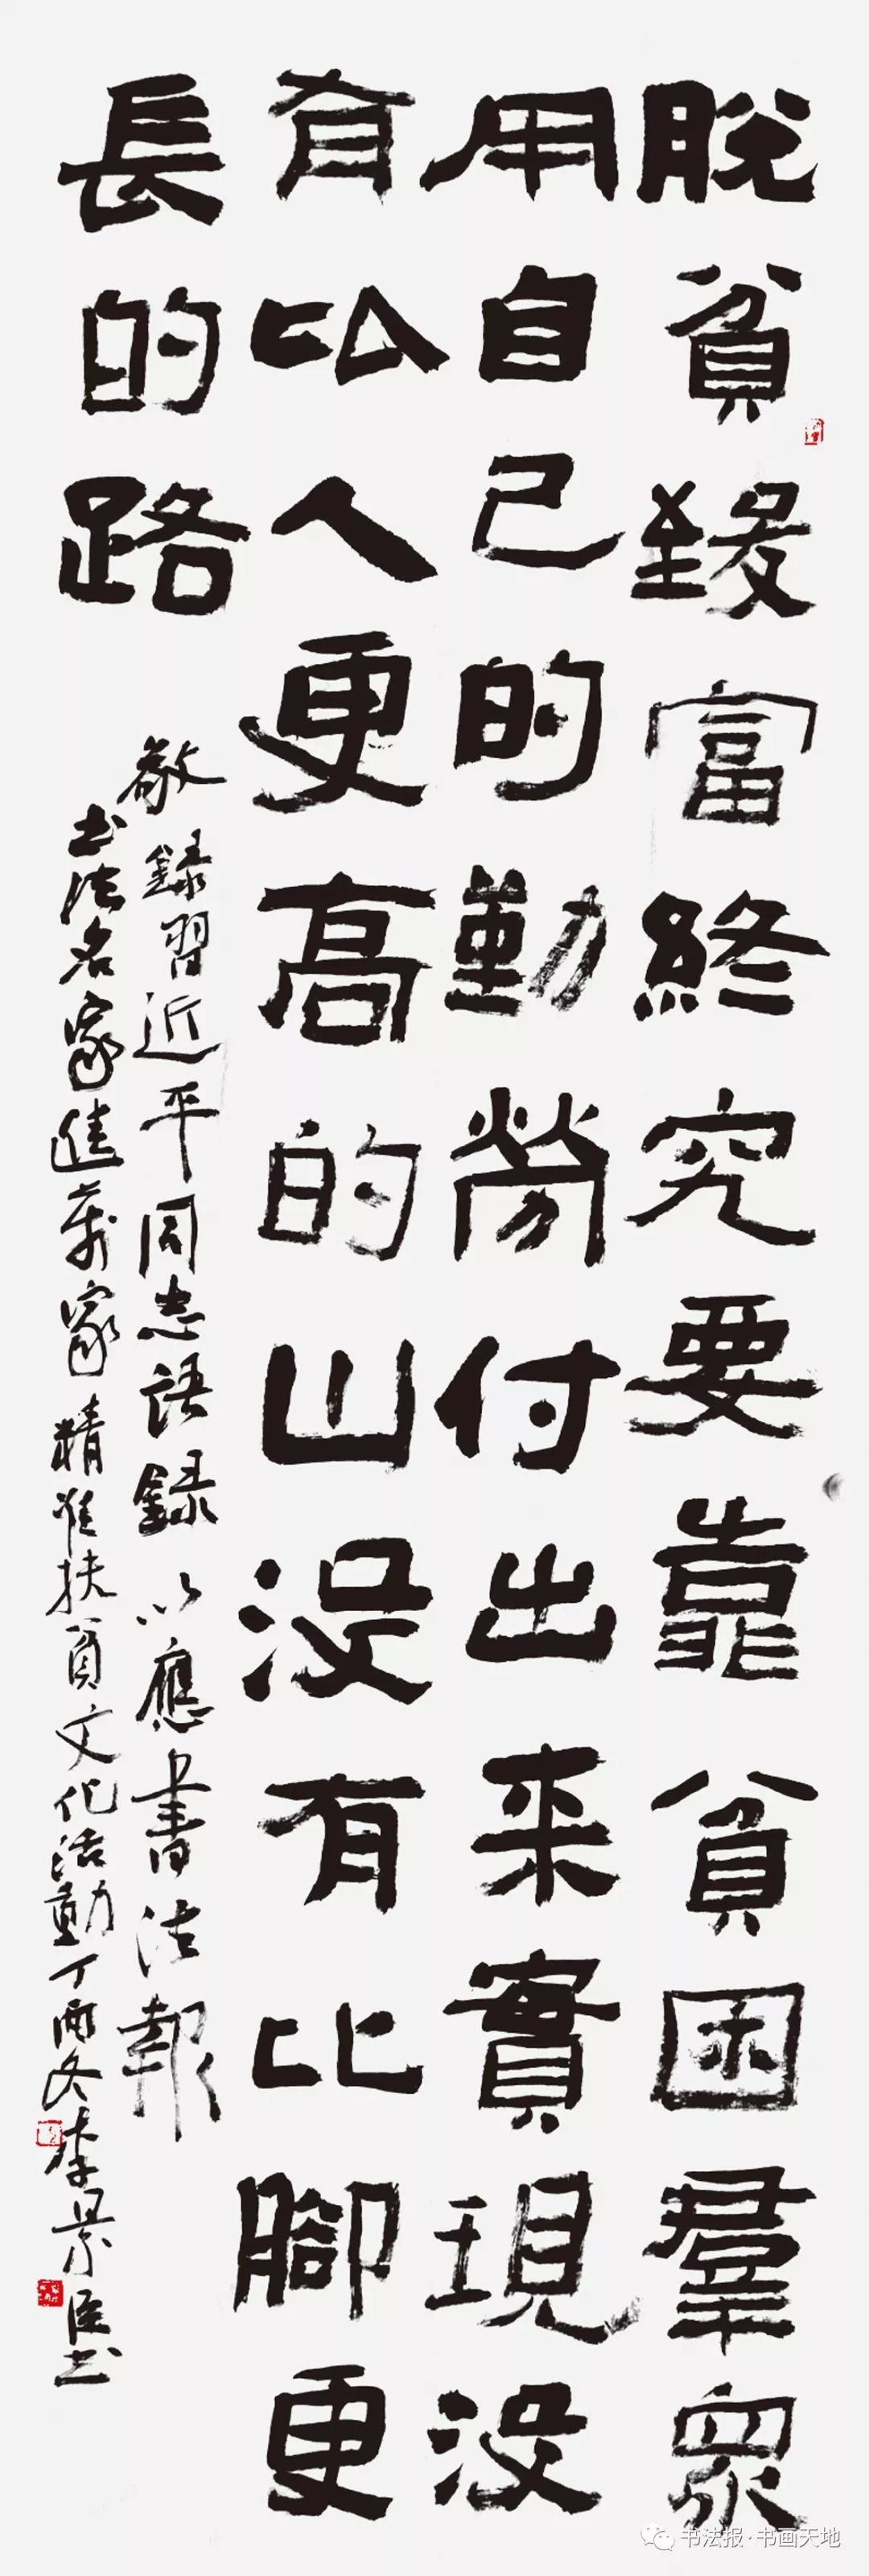 脫貧緻富終究要靠貧困羣眾
用自己的勤勞付出来實現没
有以人更高的山没有比腳更
長的路
敬録習近平同志語録以應書法報
书法名家進萬家精准扶貧文化活動丁酉冬李景臣书
书法报·书画天地